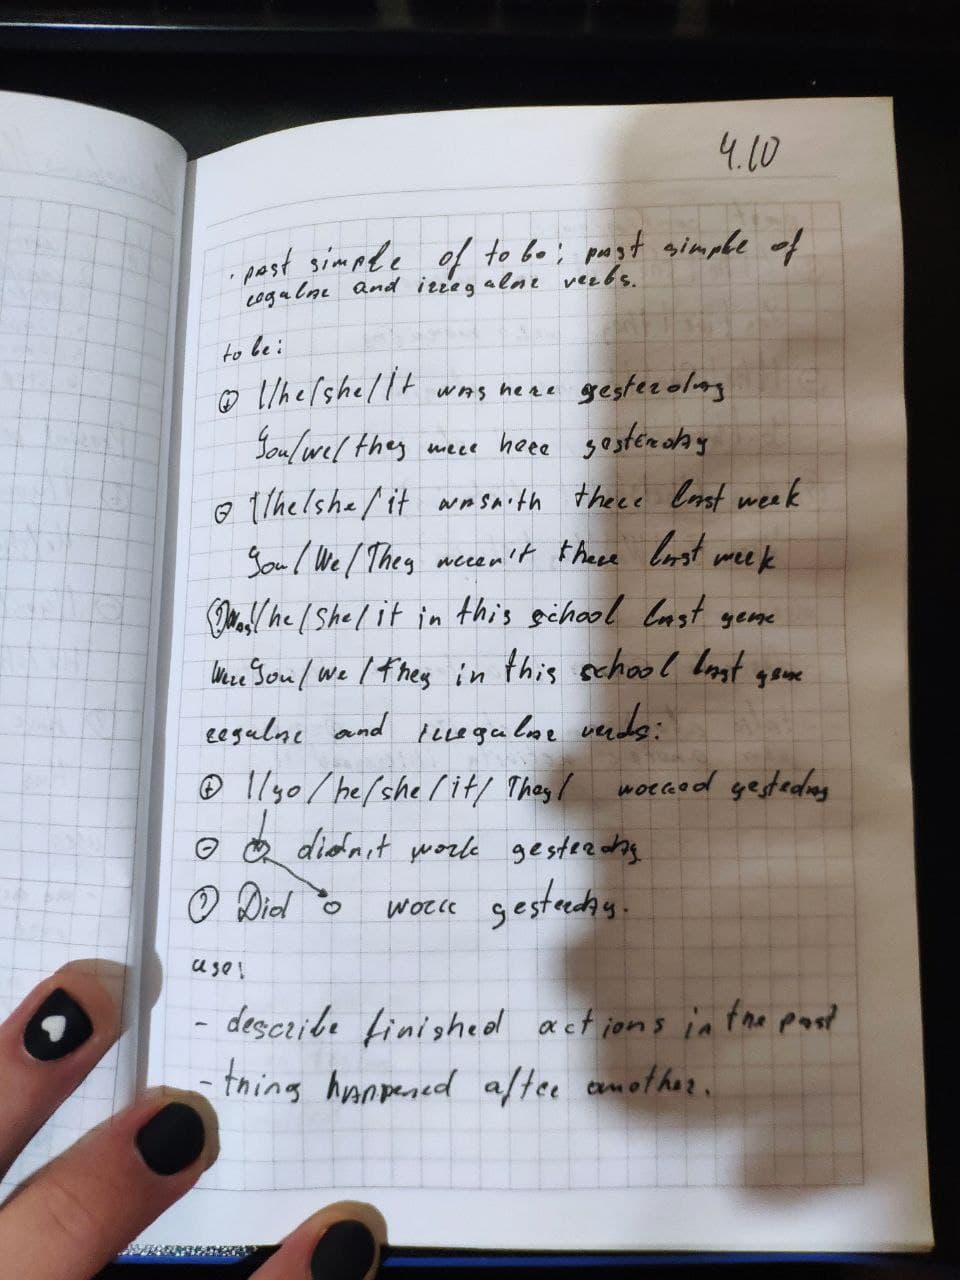 4.10
· past simple of to be; past simple of
regular and irregular verbs.
to be:
⊕ I/he/she/it was here yesterday
You/we/they were here yesterday
⊖ I/he/she/it wasn'th there last week
You/We/They weren't there last week
? Was I/he/She/it in this school last year
Were You/we/they in this school last year
regular and irregular verds:
⊕ I/yo/he/she/it/They/ worked yesteday
⊖ didn't work yesterday
? Did work yesterday.
use:
- describe finished actions in the past
- thing happened after another.